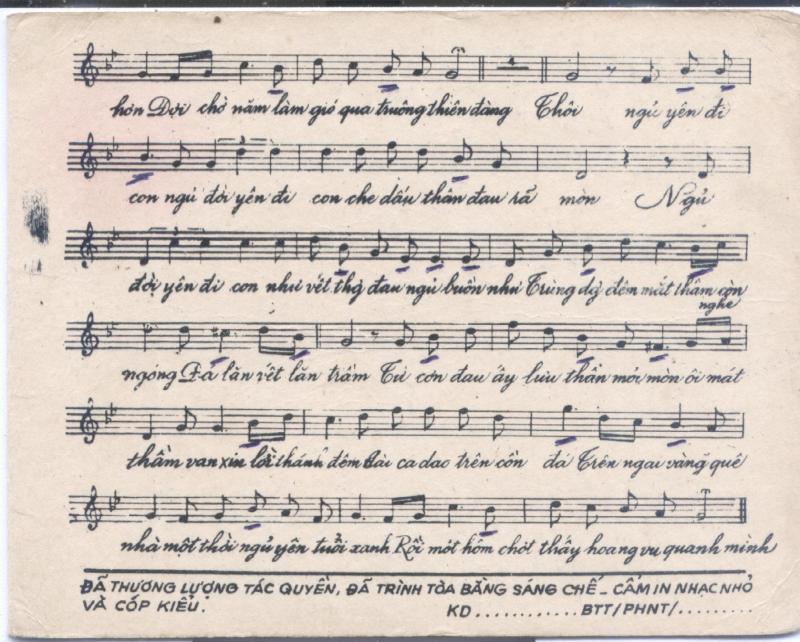 hơn Đợi chờ năm làm gió qua truông thiên đàng Thôi ngủ yên đi
con ngủ đời yên đi con che dấu thân đau rã mòn Ngủ
đời yên đi con như vết thơ đau ngủ buồn như Trùng dạ đêm mắt thâm còn
nghe
ngóng Đá lăn vết lăn trầm Từ cơn đau ấy lưu thân mỏi mòn ôi mát
thầm van xin lời thánh đêm bài ca dao trên cồn đá Trên ngai vàng quê
nhà một thời ngủ yên tuổi xanh Rồi một hôm chợt thấy hoang vu quanh mình
ĐÃ THƯƠNG LƯỢNG TÁC QUYỀN, ĐÃ TRÌNH TÒA BẰNG SÁNG CHẾ - CẤM IN NHẠC NHỎ
VÀ CỐP KIỂU. KD............BTT/PHNT/.........